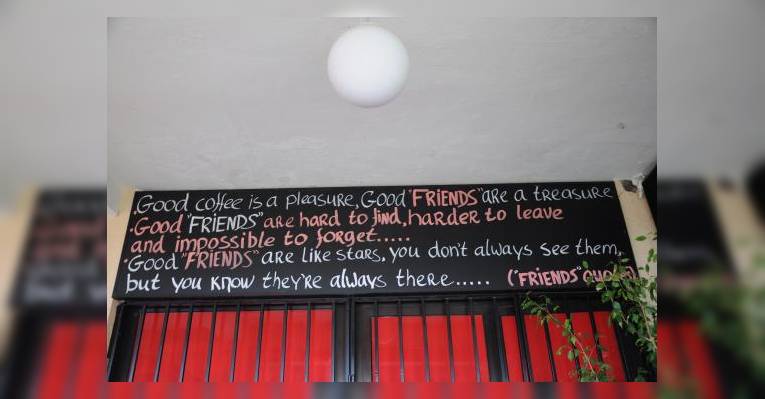 .Good coffee is a pleasure, Good "FRIENDS" are a treasure
.Good "FRIENDS" are hard to find, harder to leave
and impossible to forget.....
.Good "FRIENDS" are like stars, you don't always see them,
but you know they're always there..... ("FRIENDS" QUOTE)